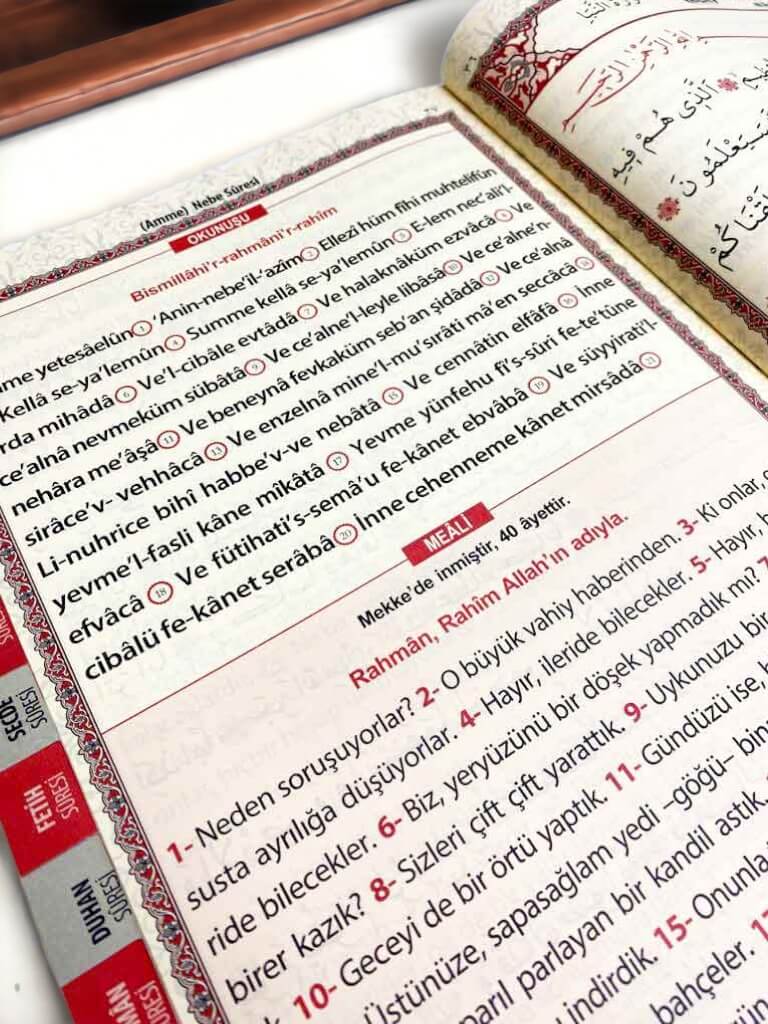 (Amme) Nebe Sûresi
OKUNUŞU
Bismillâhi'r-rahmâni'r-rahim
yetesâelûn 1 'Anin-nebe'il-'azîm 2 Ellezî hüm fîhi muhtelifûn
Kellâ se-ya'lemûn 4 Summe kellâ se-ya'lemûn 5 E-lem nec'ali'l-
rda mihâdâ 6 Ve'l-cibâle evtâdâ 7 Ve halaknâküm ezvâcâ 8 Ve
ce'alnâ nevmeküm sübâtâ 9 Ve ce'alne'l-leyle libâsâ 10 Ve ce'alne'n-
nehâra me'âşâ 11 Ve beneynâ fevkaküm seb'an şidâdâ 12 Ve ce'alnâ
sirâce'v- vehhâcâ 13 Ve enzelnâ mine'l-mu'sırâti mâ'en seccâcâ 14
Li-nuhrice bihî habbe'v-ve nebâtâ 15 Ve cennâtin elfâfâ 16 İnne
yevme'l-fasli kâne mîkâtâ 17 Yevme yünfehu fi's-sûri fe-te'tûne
efvâcâ 18 Ve fütihati's-semâ'u fe-kânet ebvâbâ 19 Ve süyyirati'l-
cibâlü fe-kânet serâbâ 20 İnne cehenneme kânet mirsâdâ 21
MEÂLİ
Mekke'de inmiştir, 40 âyettir.
Rahmân, Rahîm Allah'ın adıyla.
1- Neden soruşuyorlar? 2- O büyük vahiy haberinden. 3- Ki onlar,
susta ayrılığa düşüyorlar. 4- Hayır, ileride bilecekler. 5- Hayır,
ride bilecekler. 6- Biz, yeryüzünü bir döşek yapmadık mı?
birer kazık? 8- Sizleri çift çift yarattık. 9- Uykunuzu bir
10- Geceyi de bir örtü yaptık. 11- Gündüzü ise,
Üstünüze, sapasağlam yedi –göğü–
parlayan bir kandil astık.
indirdik. 15- Onunla
bahçeler.
SÛRESİ
SECDE
SÛRESİ
FETİH
SÛRESİ
DUHAN
SÛRESİ
SÛRESİ
سورة النبأ
الرحمن الرحيم
الَّذِي هُمْ فِيهِ
سَيَعْلَمُونَ